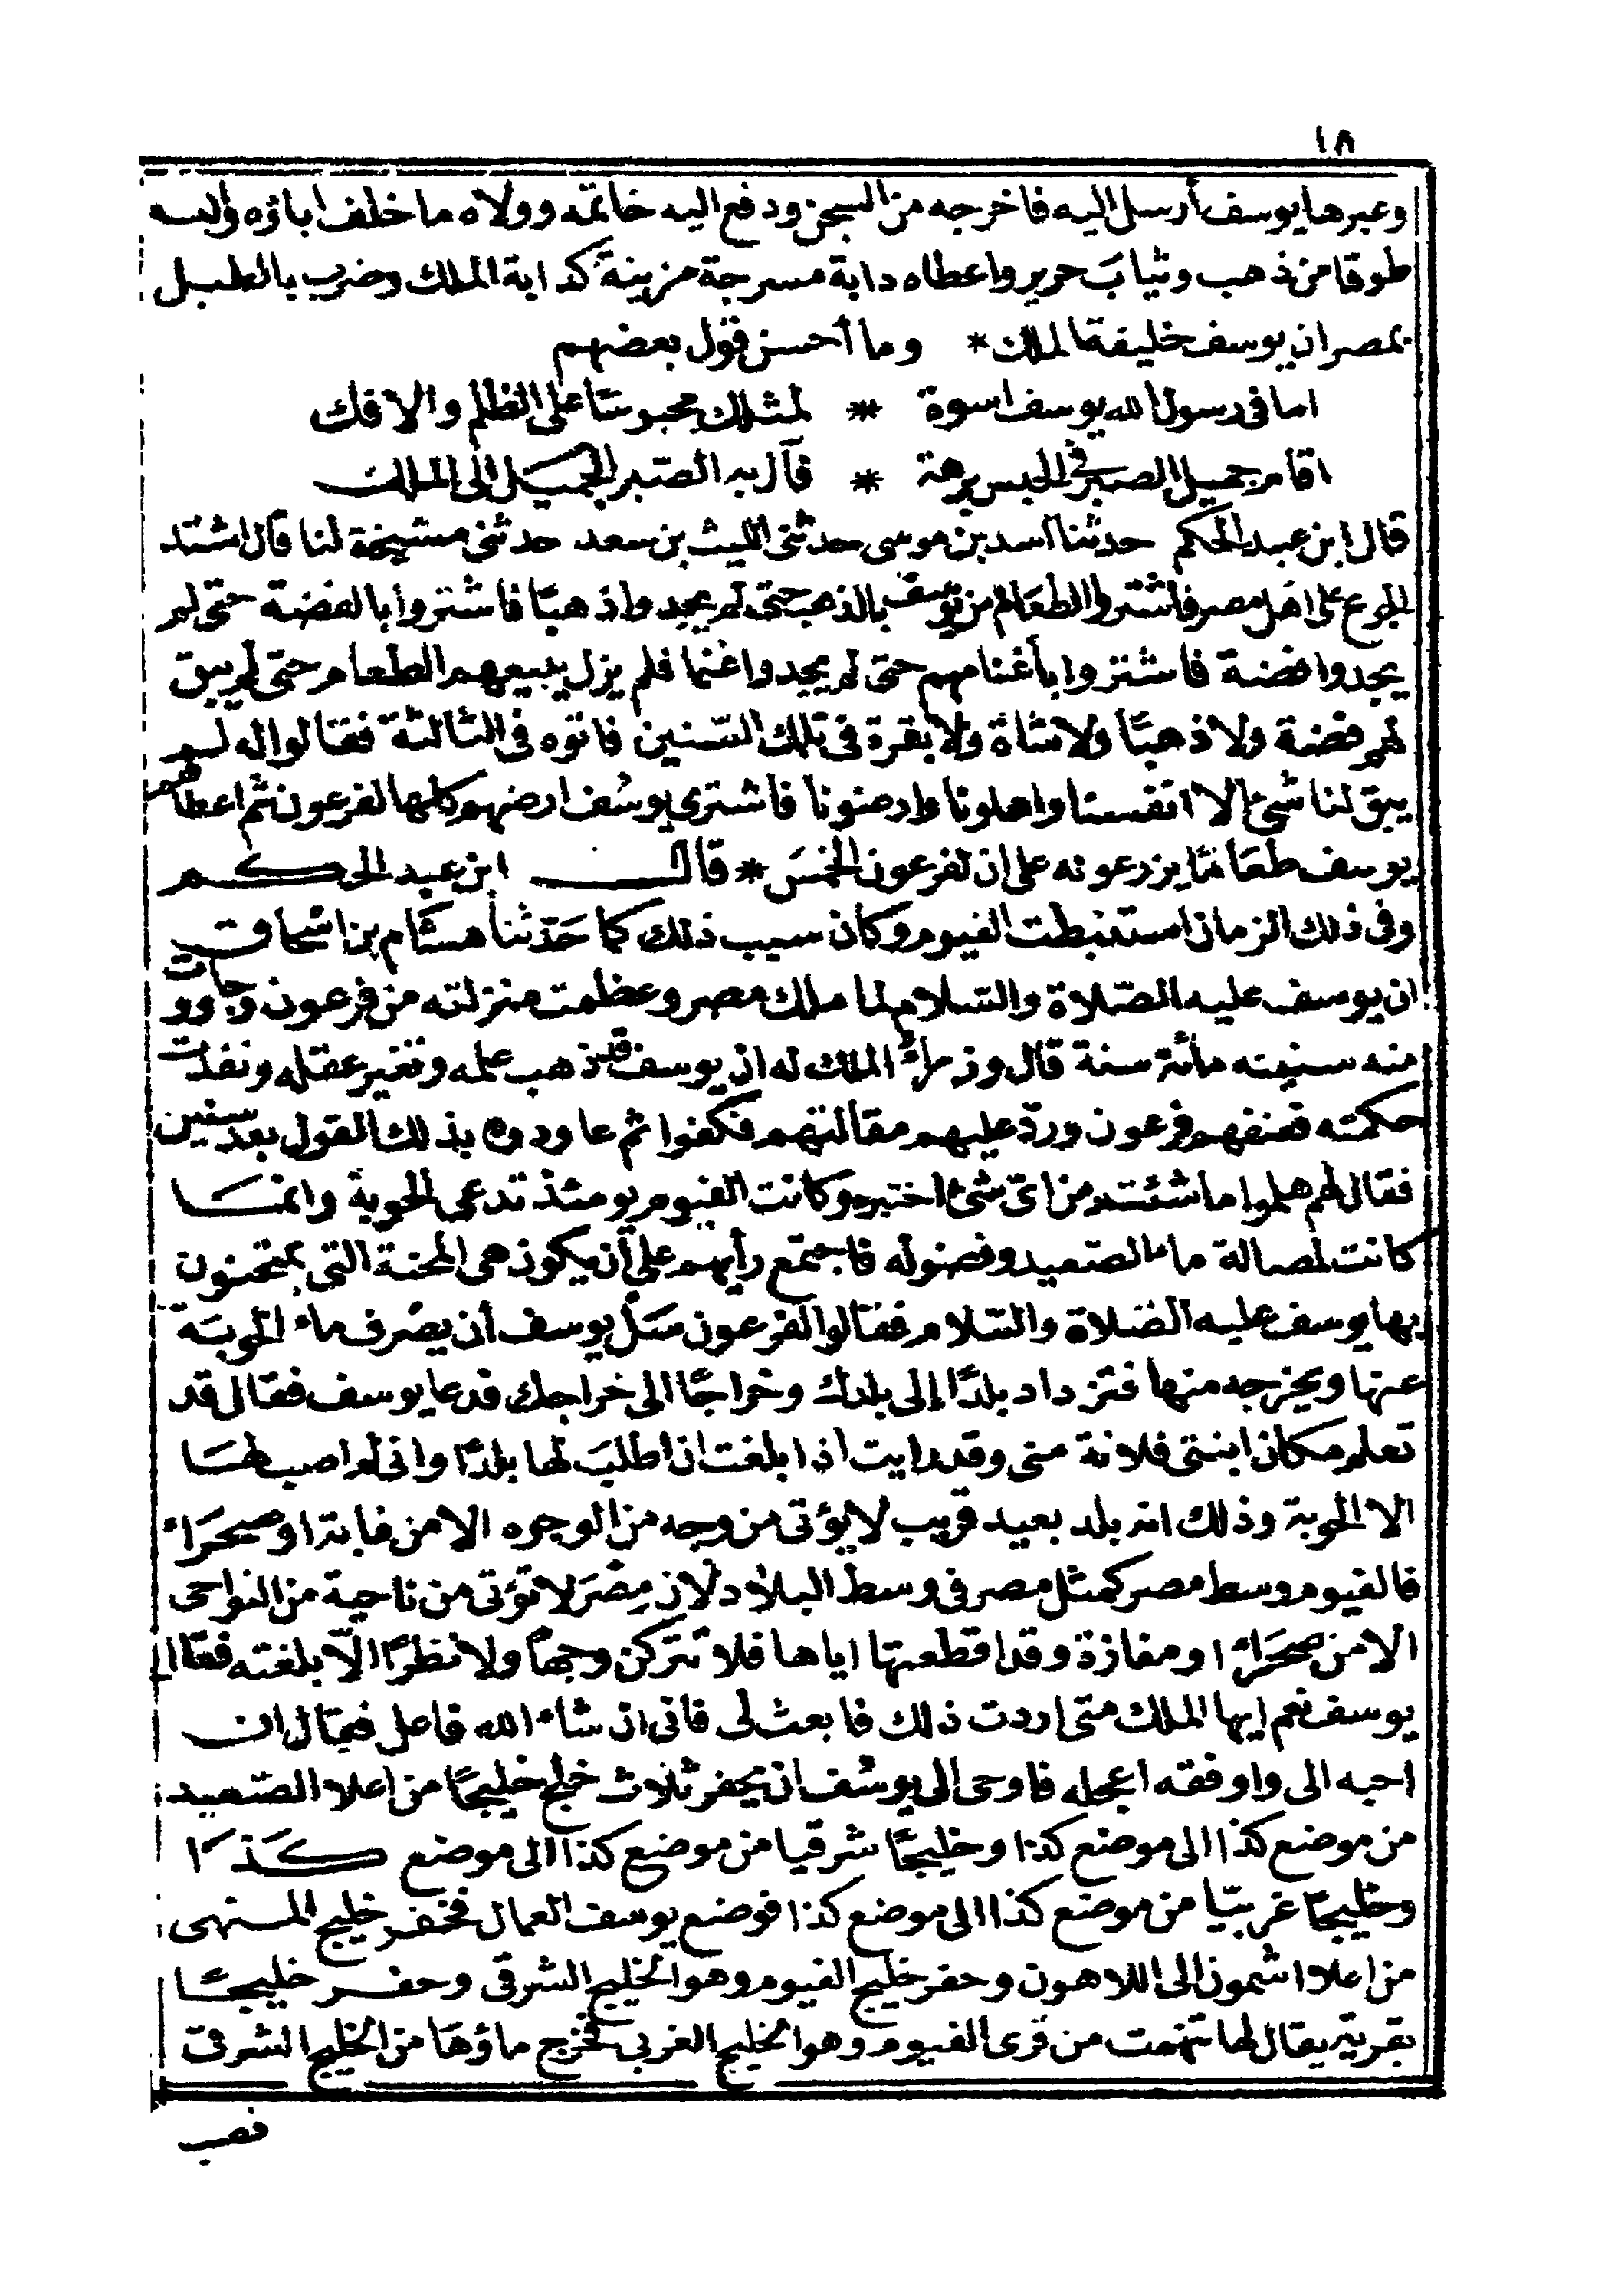 ١٨
وعبرها يوسف أرسل اليه فاخرجه من السجن ودفع اليه خاتمه وولاه ما خلف اباؤه والبسه
طوقا من ذهب وثياب حرير واعطاه دابة مسرجة مزينة كدابة الملك وضرب بالطبل
بمصر ان يوسف خليفة الملك * وما أحسن قول بعضهم
اما فى رسول الله يوسف اسوة * لمثلك محبوسا على الظلم والافك
اقام جميل الصبر فى الحبس برهة * فآل به الصبر الجميل الى الملك
قال ابن عبد الحكم حدثنا اسد بن موسى حدثنى الليث بن سعد حدثنى مشيخة لنا قال اشتد
الجوع على اهل مصر فاشتروا الطعام من يوسف بالذهب حتى لم يجدوا ذهبًا فاشتروا بالفضة حتى لم
يجدوا فضة فاشتروا بأغنامهم حتى لم يجدوا غنما فلم يزل يبيعهم الطعام حتى لم يبق
لهم فضة ولا ذهبًا ولا شاة ولا بقرة فى تلك السّنين فاتوه فى الثالثة فقالوا له لم
يبق لنا شئ الا انفسنا واهلونا وارضونا فاشترى يوسف ارضهم كلها لفرعون ثم اعطاهم
يوسف طعاما يزرعونه على ان لفرعون الخمس * قال ابن عبد الحكم
وفى ذلك الزمان استنبطت الفيوم وكان سبب ذلك كما حدّثنا هشام بن اسحاق
ان يوسف عليه الصّلاة والسّلام لما ملك مصر وعظمت منزلته من فرعون وجاوزت
منه سنينه مائة سنة قال وزراء الملك له ان يوسف قد ذهب علمه وتغير عقله ونفدت
حكمته فعنفهم فرعون وردّ عليهم مقالتهم فكفوا ثم عاودوه بذلك القول بعد سنين
فقال لهم هلموا ما شئتم من اىّ شئ اختبره وكانت الفيوم يومئذ تدعى الجوبة وانما
كانت لمصالة ماء الصّعيد وفضوله فاجتمع رأيهم على أن يكون هى المحنة التى يمتحنون
بها يوسف عليه الصّلاة والسّلام فقالوا لفرعون سل يوسف أن يصرف ماء الجوبة
عنها ويخرجه منها فتزداد بلدًا إلى بلدك وخراجًا الى خراجك فدعا يوسف فقال قد
تعلم مكان ابنتى فلانة منى وقد رايت اذا بلغت ان اطلب لها بلدًا وانى لم اصب لها
الا الجوبة وذلك انه بلد بعيد قريب لا يؤتى من وجه من الوجوه الا من غابة او صحراء
فالفيوم وسط مصر كمثل مصر فى وسط البلاد لان مصر لا تؤتى من ناحية من النواحى
الا من صحراء او مفازة وقد اقطعتها اياها فلا تتركن وجهًا ولا نظرًا الّا بلغته فقال
يوسف نعم ايها الملك متى اردت ذلك فابعث لى فانى ان شاء الله فاعل فقال ان
احبه الى واوفقه اعجله فاوحى الى يوسف ان يحفر ثلاث خلج خليجًا من اعلا الصّعيد
من موضع كذا الى موضع كذا وخليجًا شرقيا من موضع كذا الى موضع كذا
وخليجًا غربيّا من موضع كذا الى موضع كذا فوضع يوسف العمال فحفر خليج المنهى
من اعلا اشمون الى اللاهون وحفر خليج الفيوم وهو الخليج الشرقى وحفر خليجًا
بقرية يقال لها تنهمت من قرى الفيوم وهو الخليج الغربى فخرج ماؤها من الخليج الشرقى
فصب